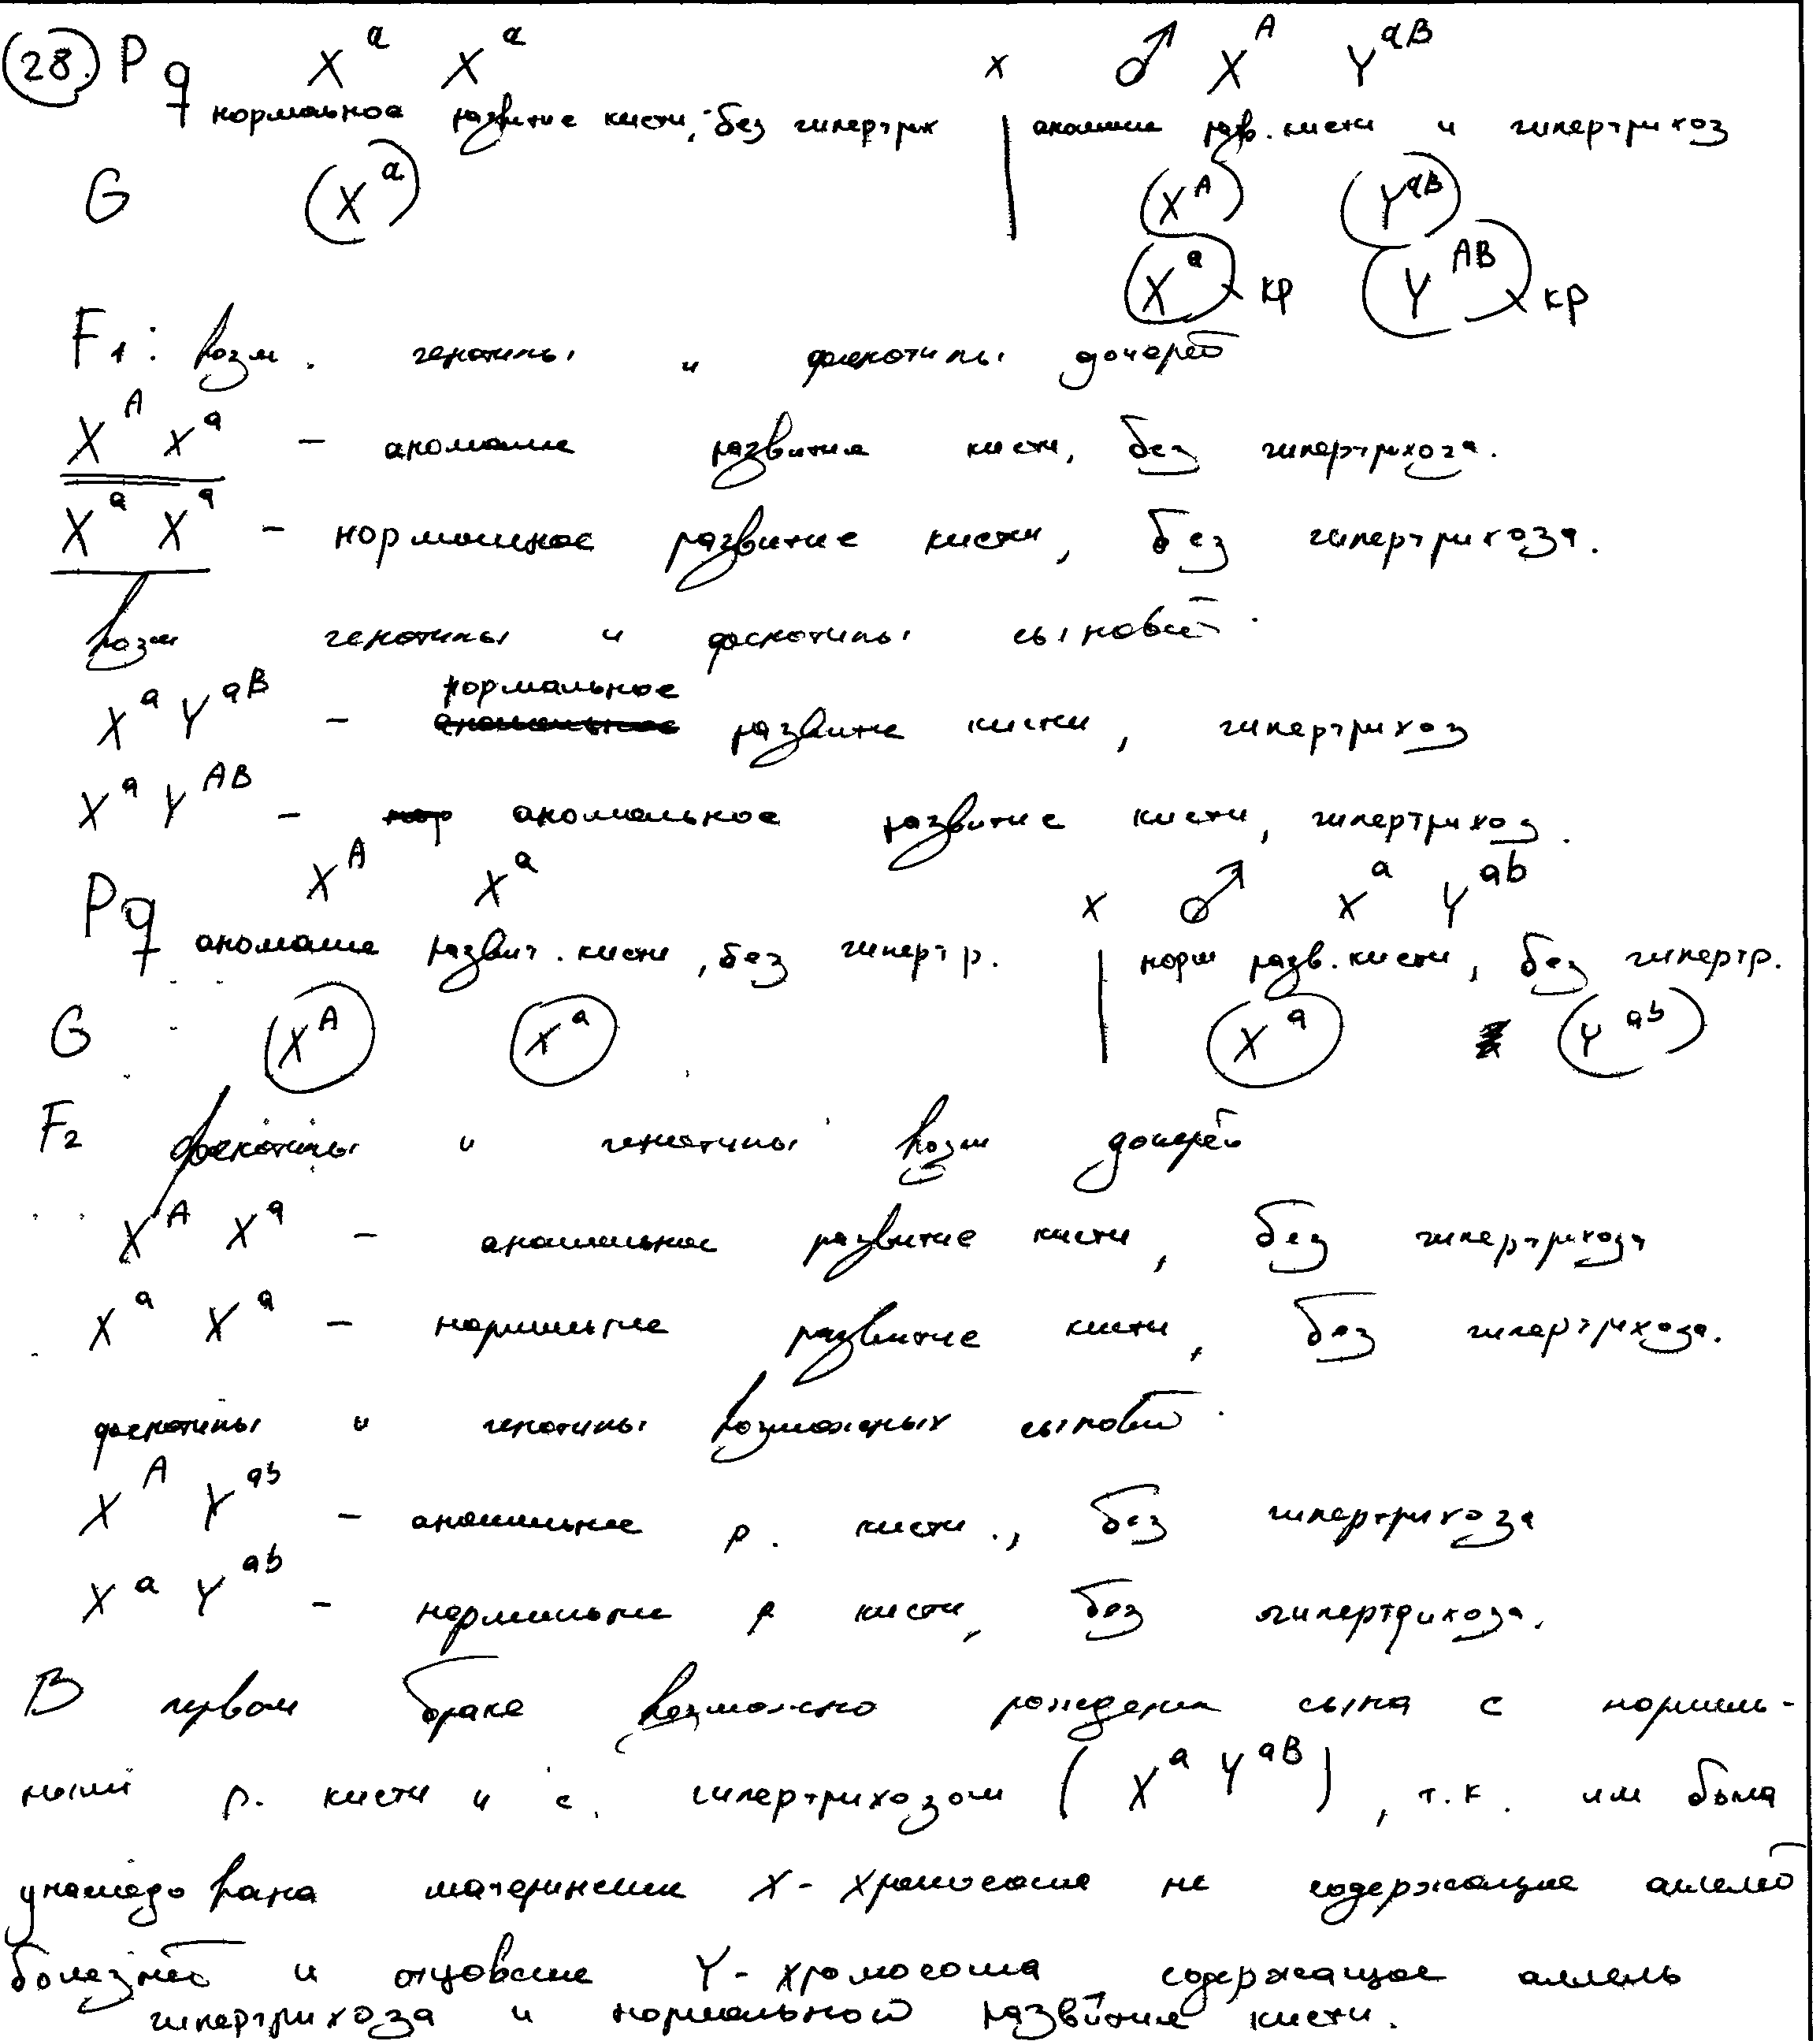 28. P ♀ X^a X^a × ♂ X^A Y^aB
нормальное развитие кисти, без гипертрих | аномалия разв. кисти и гипертрихоз
G (X^a) | (X^A) (Y^aB)
(X^a) кр (Y^AB) кр
F1: возм. генотипы и фенотипы дочерей
X^A X^a – аномалия развития кисти, без гипертрихоза.
X^a X^a – нормальное развитие кисти, без гипертрихоза.
возм генотипы и фенотипы сыновей
X^a Y^aB – нормальное развитие кисти, гипертрихоз
X^a Y^AB – аномальное развитие кисти, гипертрихоз.
P ♀ X^A X^a × ♂ X^a Y^ab
аномалия развит. кисти, без гипертр. | норм разв. кисти, без гипертр.
G (X^A) (X^a) | (X^a) (Y^ab)
F2 фенотипы и генотипы возм дочерей
X^A X^a – аномальное развитие кисти, без гипертрихоза
X^a X^a – нормальное развитие кисти, без гипертрихоза.
фенотипы и генотипы возможных сыновей
X^A Y^ab – аномальное р. кисти., без гипертрихоза
X^a Y^ab – нормальное р кисти, без гипертрихоза.
В первом браке возможно рождение сына с нормаль-
ным р. кисти и с. гипертрихозом (X^a Y^aB), т.к. им была
унаследована материнская X-хромосома не содержащая аллелей
болезней и отцовская Y-хромосома, содержащая аллель
гипертрихоза и нормальной развития кисти.